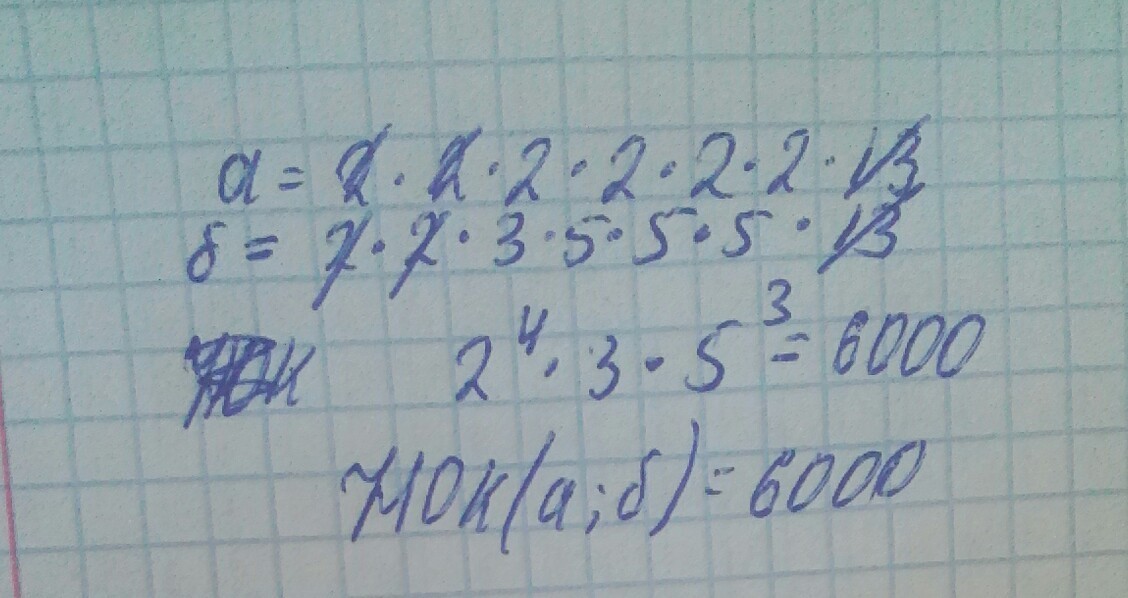 a = 2 · 2 · 2 · 2 · 2 · 2 · 13
б = 2 · 2 · 3 · 5 · 5 · 5 · 13
НОК 2⁴ · 3 · 5³ = 6000
НОК(а; б) = 6000